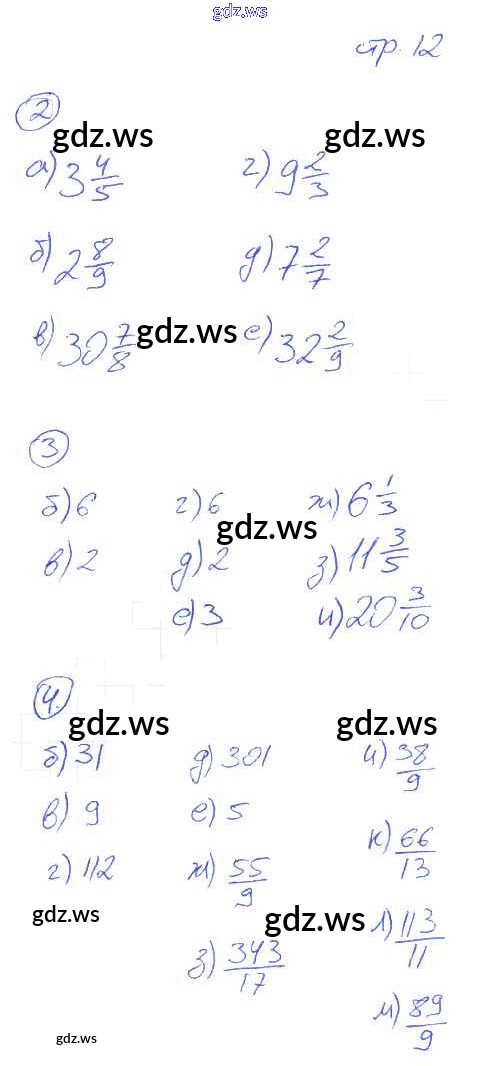 gdz.ws
стр. 12
2
gdz.ws gdz.ws
а) 3 4/5 г) 9 2/3
б) 2 8/9 д) 7 2/7
в) 30 7/8 gdz.ws е) 32 2/9
3
б) 6 г) 6 ж) 6 1/3
gdz.ws
в) 2 д) 2 з) 11 3/5
е) 3 и) 20 3/10
4.
gdz.ws gdz.ws
б) 31 д) 301 и) 38/9
в) 9 е) 5 к) 66/13
г) 112 ж) 55/9 л) 113/11
gdz.ws gdz.ws
з) 343/17 м) 89/9
gdz.ws